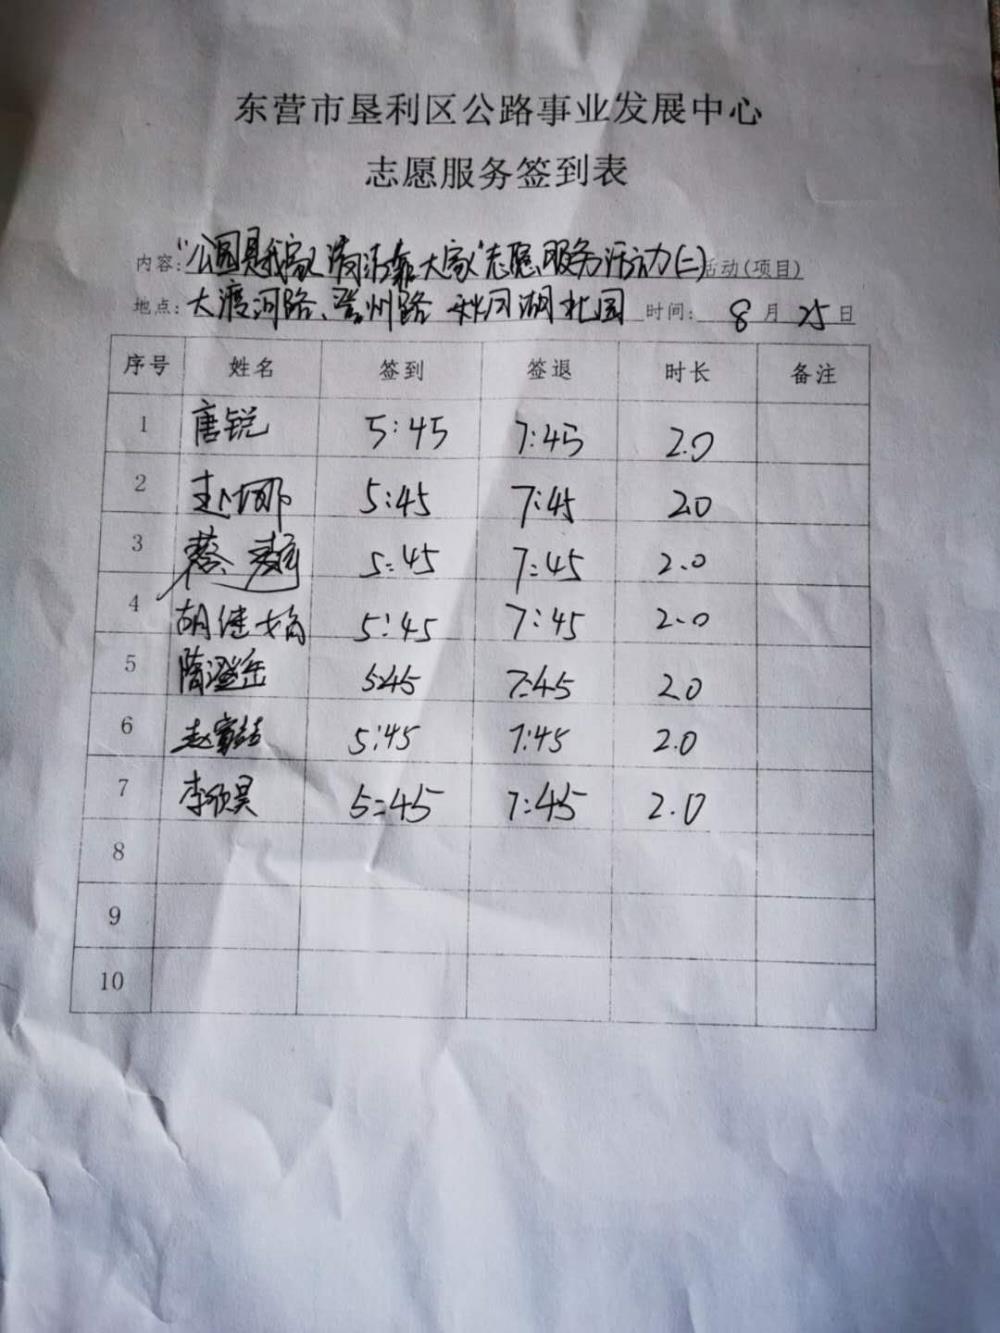 东营市垦利区公路事业发展中心
志愿服务签到表
内容:"公园是我家清洁靠大家"志愿服务活动(二)活动(项目)
地点:大渡河路、登州路 湖北园 时间: 8月25日
序号 姓名 签到 签退 时长 备注
1 唐锐 5:45 7:45 2.0
2 赵娜 5:45 7:45 20
3 蔡 5:45 7:45 2.0
4 胡继娟 5:45 7:45 2.0
5 隋 5:45 7:45 2.0
6 赵 5:45 7:45 2.0
7 李欣昊 5:45 7:45 2.0
8
9
10